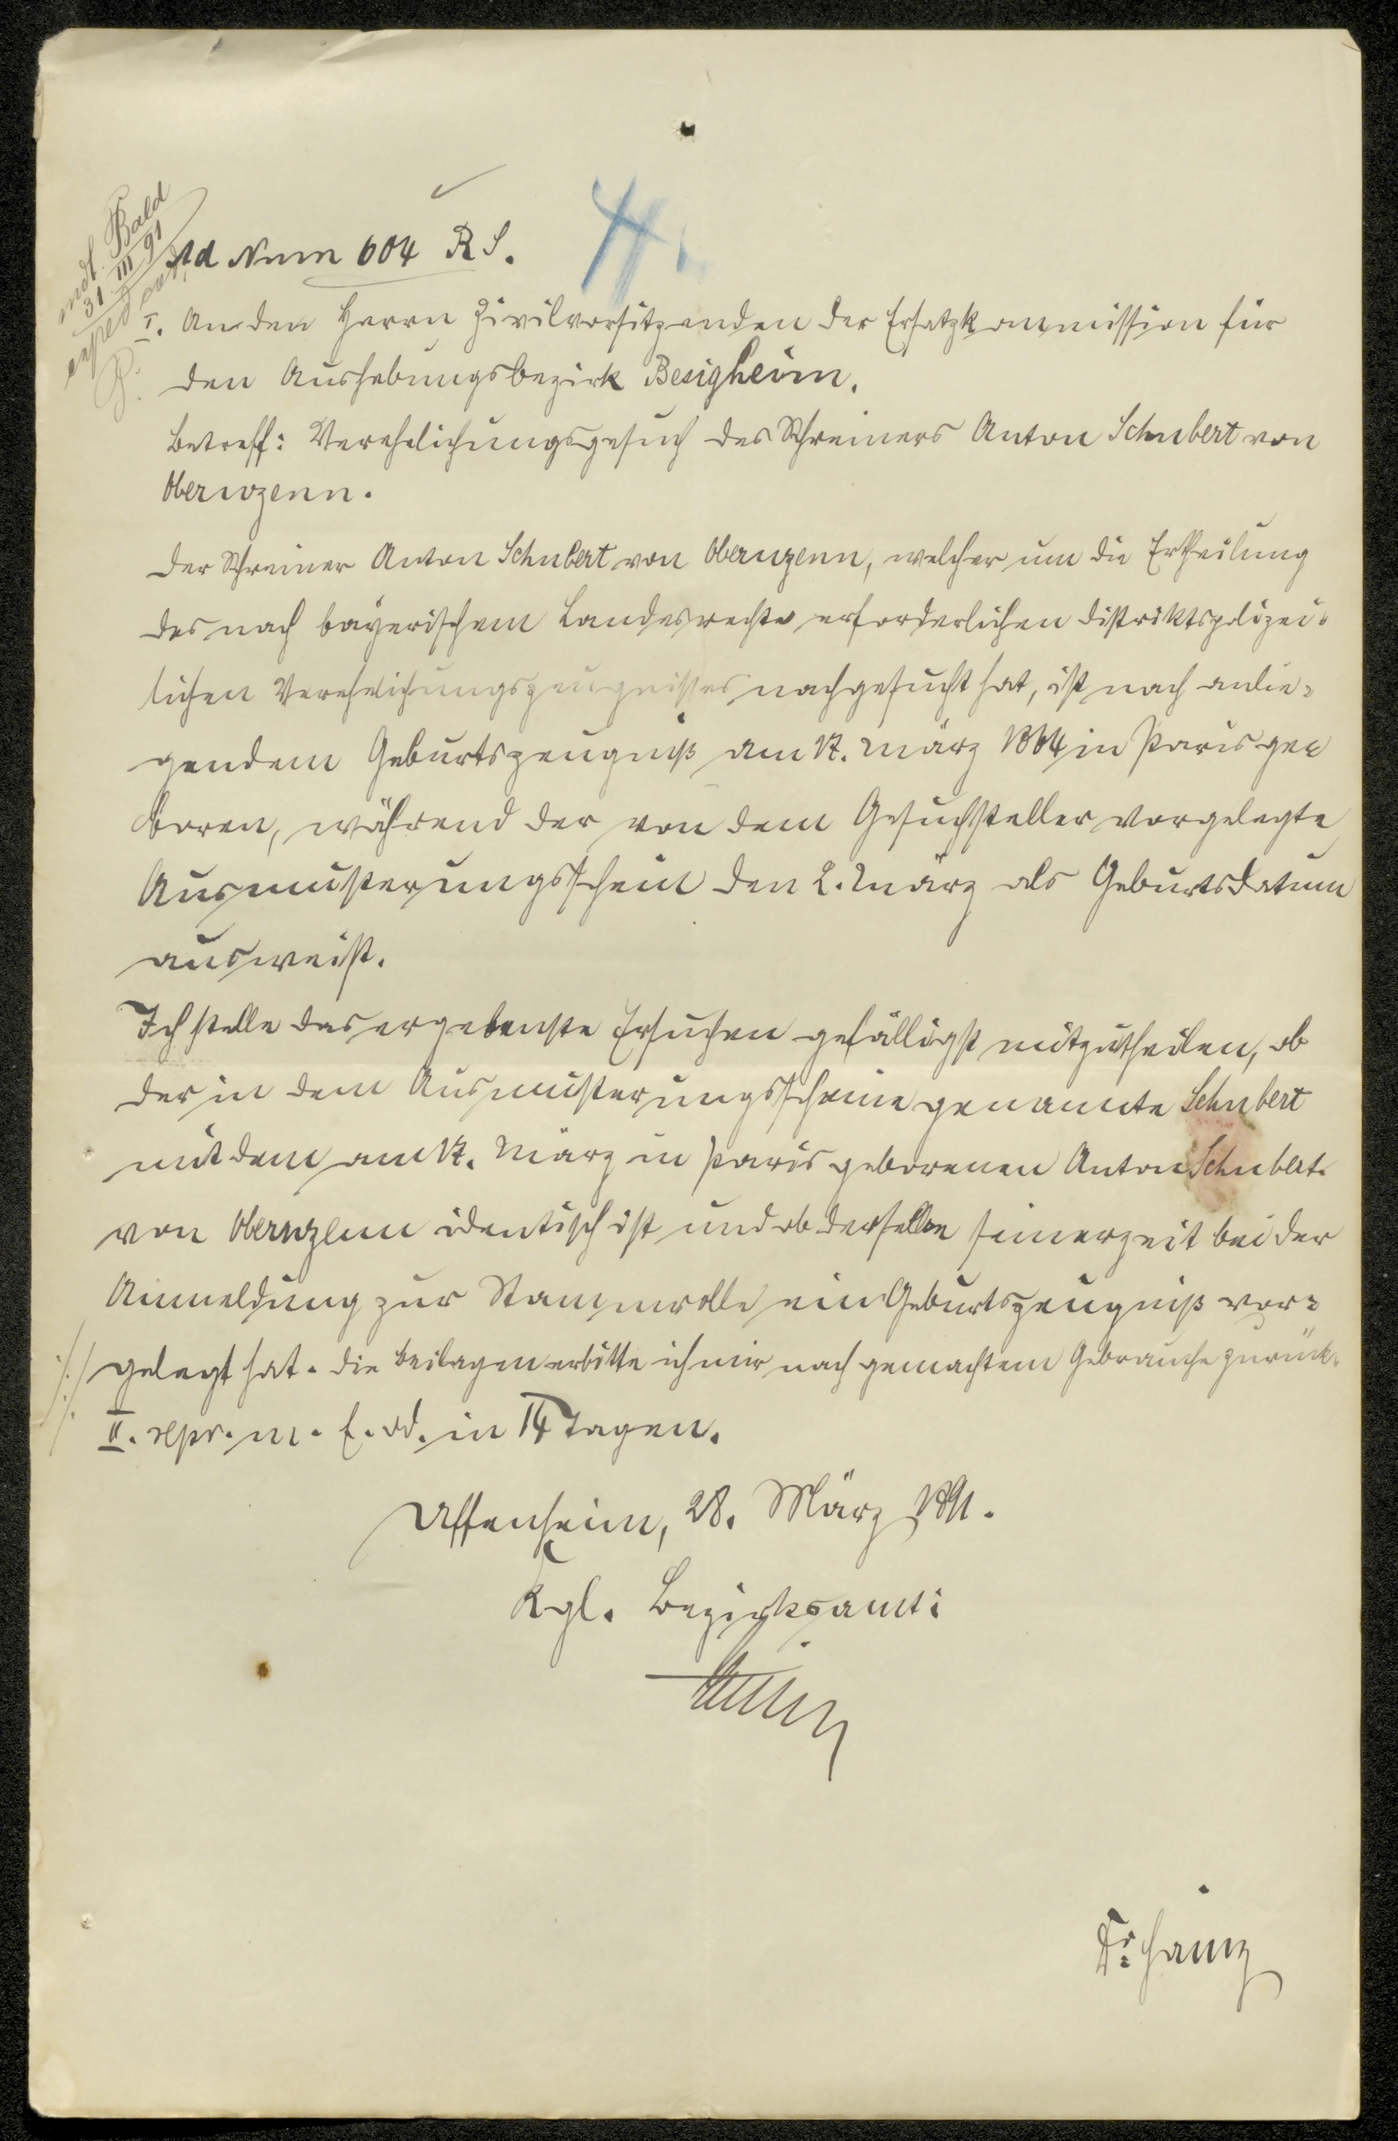 mdt. Bald
31 III 91
exped. eod.
Ad Num 604 R S.
I. An den Herrn Zivilvorsitzenden der Ersatzkommission für
den Aushebungsbezirk Besigheim.
Betreff: Verehelichungsgesuch des Schreiners Anton Schubert von
Obernzenn.
Der Schreiner Anton Schubert von Obernzenn, welcher um die Ertheilung
des nach bayerischem Landesrechte erforderlichen distriktspolizei-
lichen Verehelichungszeugnisses nachgesucht hat, ist nach anlie-
gendem Geburtszeugniß am 17. März 1864 in Paris ge-
boren, während der von dem Gesuchsteller vorgelegte
Ausmusterungsschein den 2. März als Geburtsdatum
ausweist.
Ich stelle das ergebenste Ersuchen gefälligst mitzutheilen, ob
der in dem Ausmusterungsscheine genannte Schubert
mit dem am 17. März in Paris geborenen Anton Schubert
von Obernzenn identisch ist und ob derselbe seinerzeit bei der
Anmeldung zur Stammrolle ein Geburtszeugniß vor-
gelegt hat. Die Beilagen erbitte ich mir nach gemachtem Gebrauche zurück.
II. repr. m. E. od. in 14 Tagen.
Uffenheim, 28. März 1891.
Kgl. Bezirksamt: